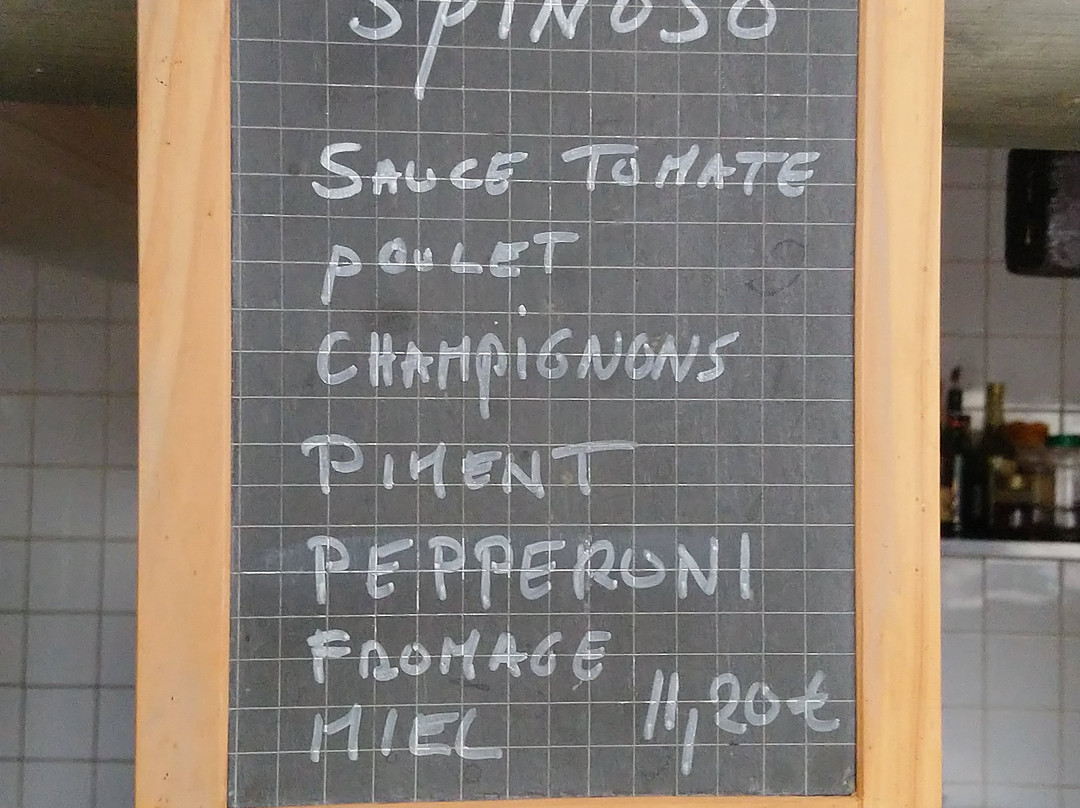 SPINOSO
SAUCE TOMATE
POULET
CHAMPIGNONS
PIMENT
PEPPERONI
FROMAGE
MIEL 11,20€